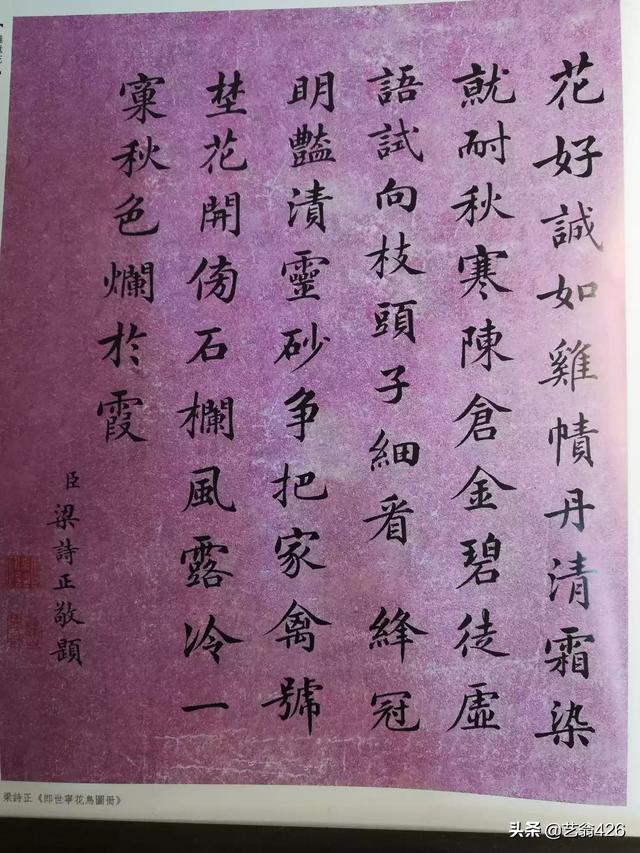 花好誠如雞幘丹清霜染
就耐秋寒陳倉金碧徒虛
語試向枝頭子細看 絳冠
明豔漬靈砂争把家禽號
埜花開傍石欄風露冷一
窠秋色爛於霞
臣梁詩正敬題
梁詩正《郎世寧花鳥圖冊》
头条 @艺翁426